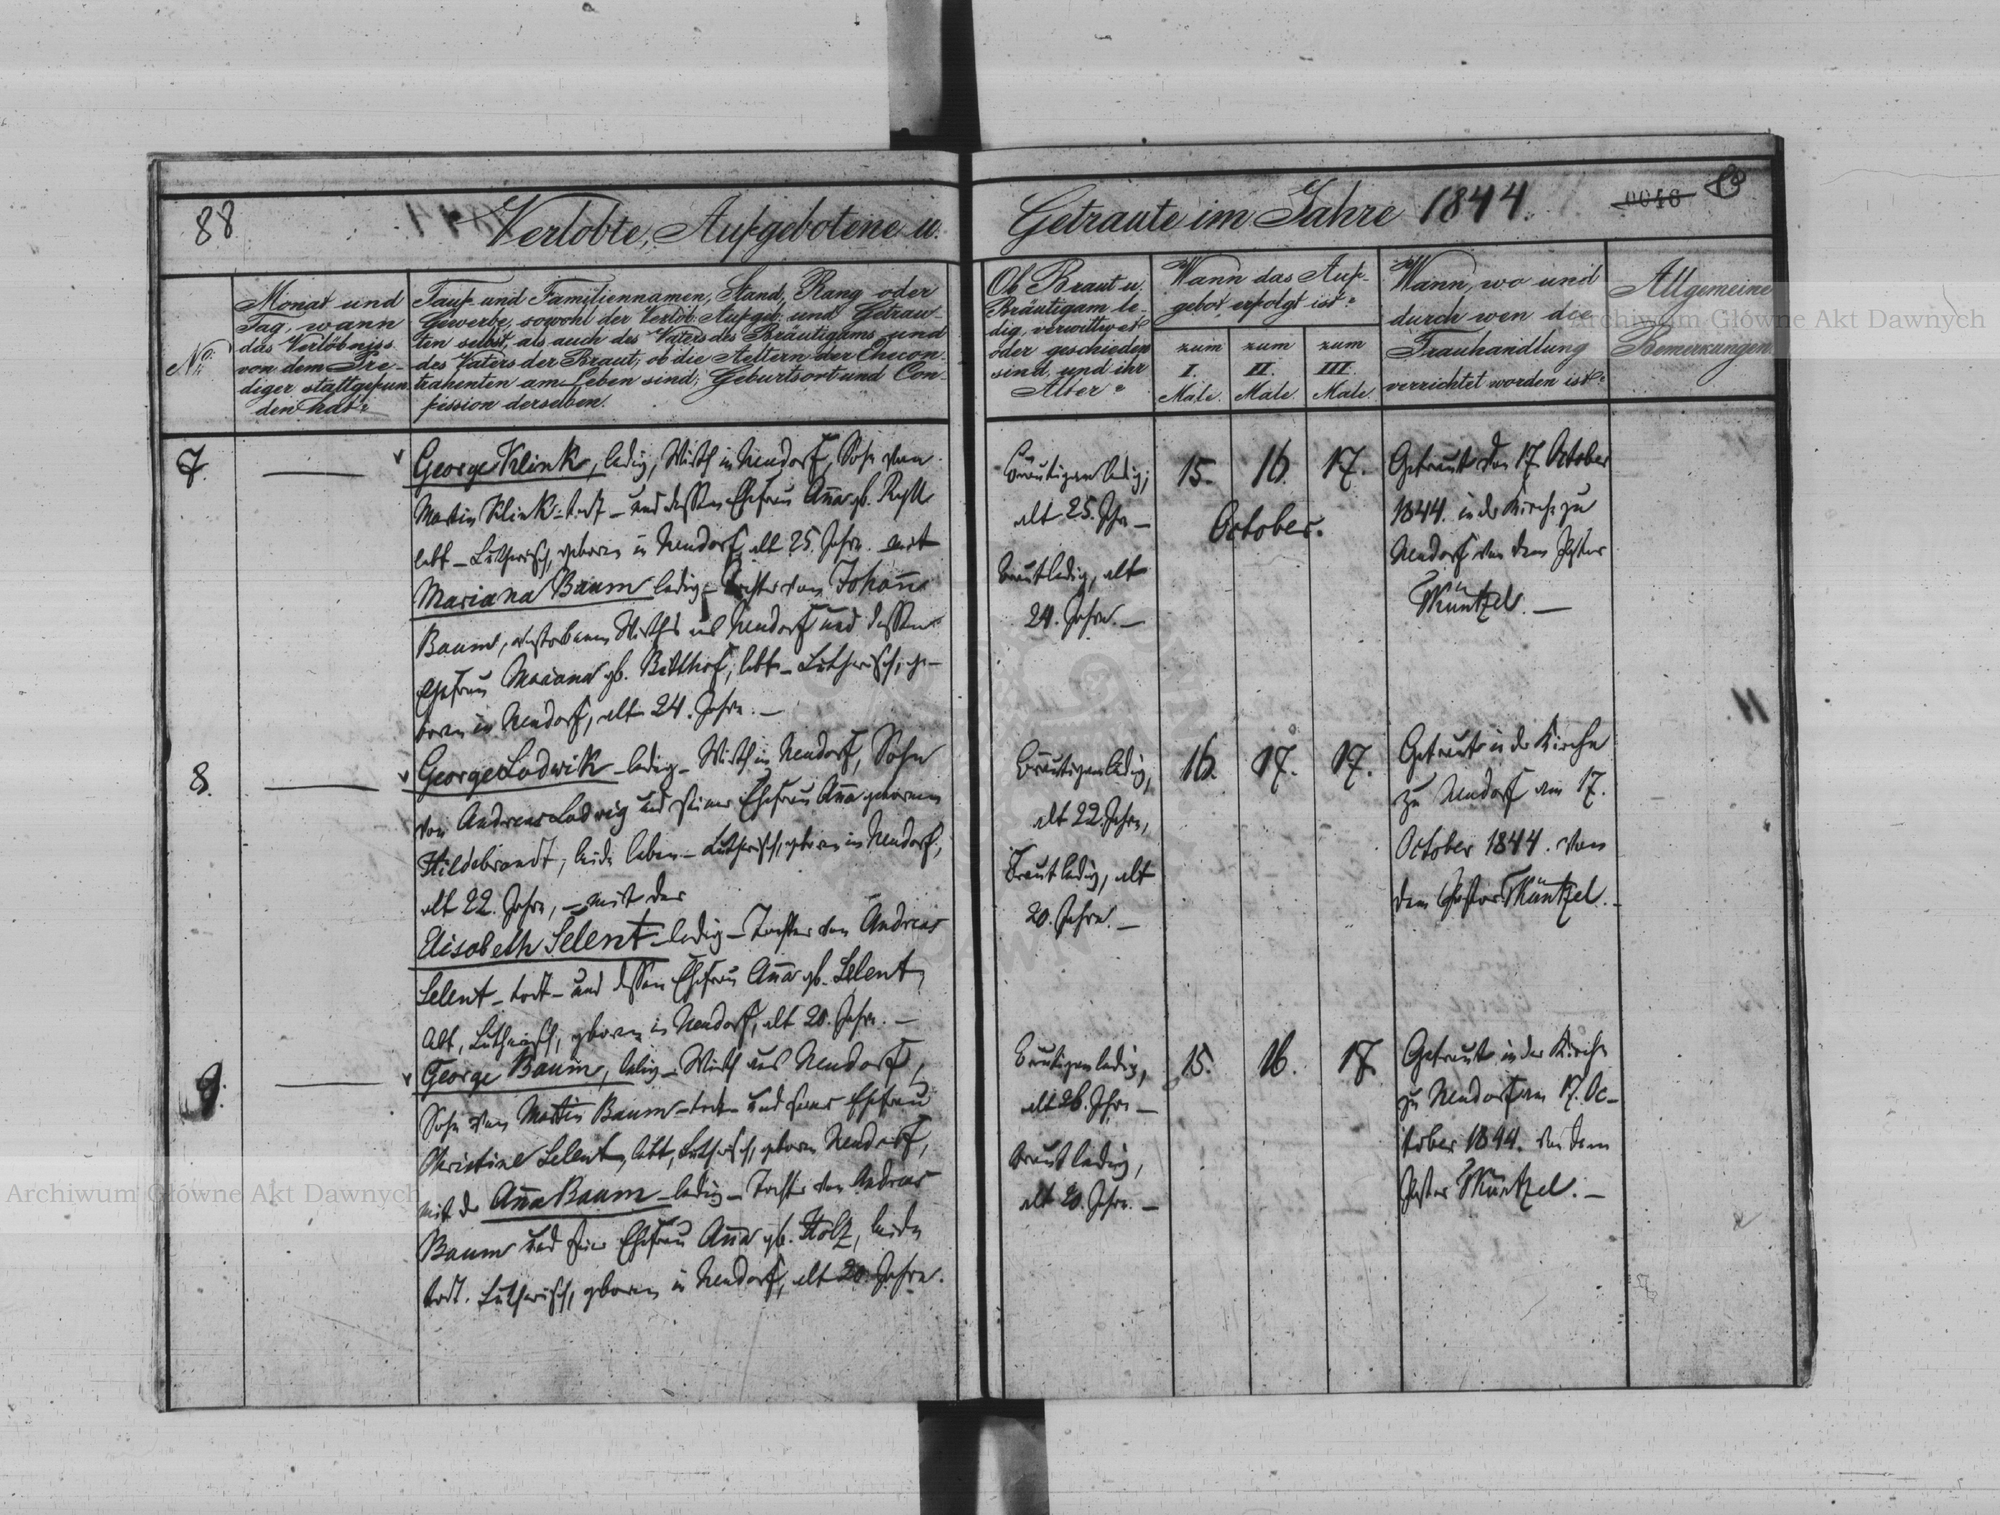 88
Verlobte, Aufgebotene u.
Getraute im Jahre 1844.
0046
89
No:
Monat und
Tag, wann
das Verlöbniss
von dem Pre-
diger stattgefun
den hat?
Tauf und Familiennamen, Stand, Rang oder
Gewerbe, sowohl der Verlob: Aufgeb: und Getrau-
ten selbst, als auch des Vaters des Bräutigams und
des Vaters der Braut; ob die Aeltern der Checon-
trahenten am Leben sind; Geburtsort und Con-
fession derselben.
Ob Braut u.
Bräutigam le-
dig, verwittwet
oder geschieden
sind, und ihr
Alter?
Wann das Auf-
gebot erfolgt ist?
zum
I.
Male.
zum
II.
Male.
zum
III.
Male.
Wann, wo und
durch wen die
Trauhandlung
verrichtet worden ist?
Allgemeine
Bemerkungen.
7.
George Klink, ledig, Wirth in Neudorf, Sohn von
Martin Klink - todt - und dessen Ehefrau Anna geb.
lebt - Lutherisch, geboren in Neudorf, alt 25. Jahre. mit
Mariana Baum ledig - Tochter von Johann
Baum, verstorbenen Wirths aus Neudorf und dessen
Ehefrau Mariana geb. lebt - Lutherisch, ge-
boren in Neudorf, alt 24. Jahre. -
Bräutigam ledig,
alt 25. Jhr. -
Braut ledig, alt
24. Jahre. -
15. 16. 17.
October.
Getraut den 17 October
1844. in der Kirche zu
Neudorf von dem Pastor
Müntzel. -
8.
George Lodwik - ledig - Wirth in Neudorf, Sohn
von Andreas Lodwig und seiner Ehefrau Anna geborenen
Hildebrandt, beide leben - Lutherisch, geboren in Neudorf,
alt 22. Jahre, - mit der
Elisabeth Selent - ledig - Tochter von Andreas
Selent - todt - und dessen Ehefrau Anna geb. Selent,
lebt, Lutherisch, geboren in Neudorf, alt 20. Jahre. -
Bräutigam ledig,
alt 22. Jahre,
Braut ledig, alt
20. Jahre. -
16. 17. 17.
Getraut in der Kirche
zu Neudorf am 17.
October 1844. von
dem Pastor Müntzel. -
9.
George Baum, ledig - Wirth aus Neudorf,
Sohn von Martin Baum - todt - und seiner Ehefrau
Christine Selent, lebt, Lutherisch, geboren Neudorf,
mit der Anna Baum - ledig - Tochter von Andreas
Baum und seiner Ehefrau Anna geb. Holtz, beide
todt. Lutherisch, geboren in Neudorf, alt 20. Jahre.
Bräutigam ledig,
alt 26. Jhre -
Braut ledig,
alt 20. Jahre. -
15. 16. 17.
Getraut in der Kirche
zu Neudorf am 17. Oc-
tober 1844. von dem
Pastor Müntzel. -
Archiwum Główne Akt Dawnych
Archiwum Główne Akt Dawnych